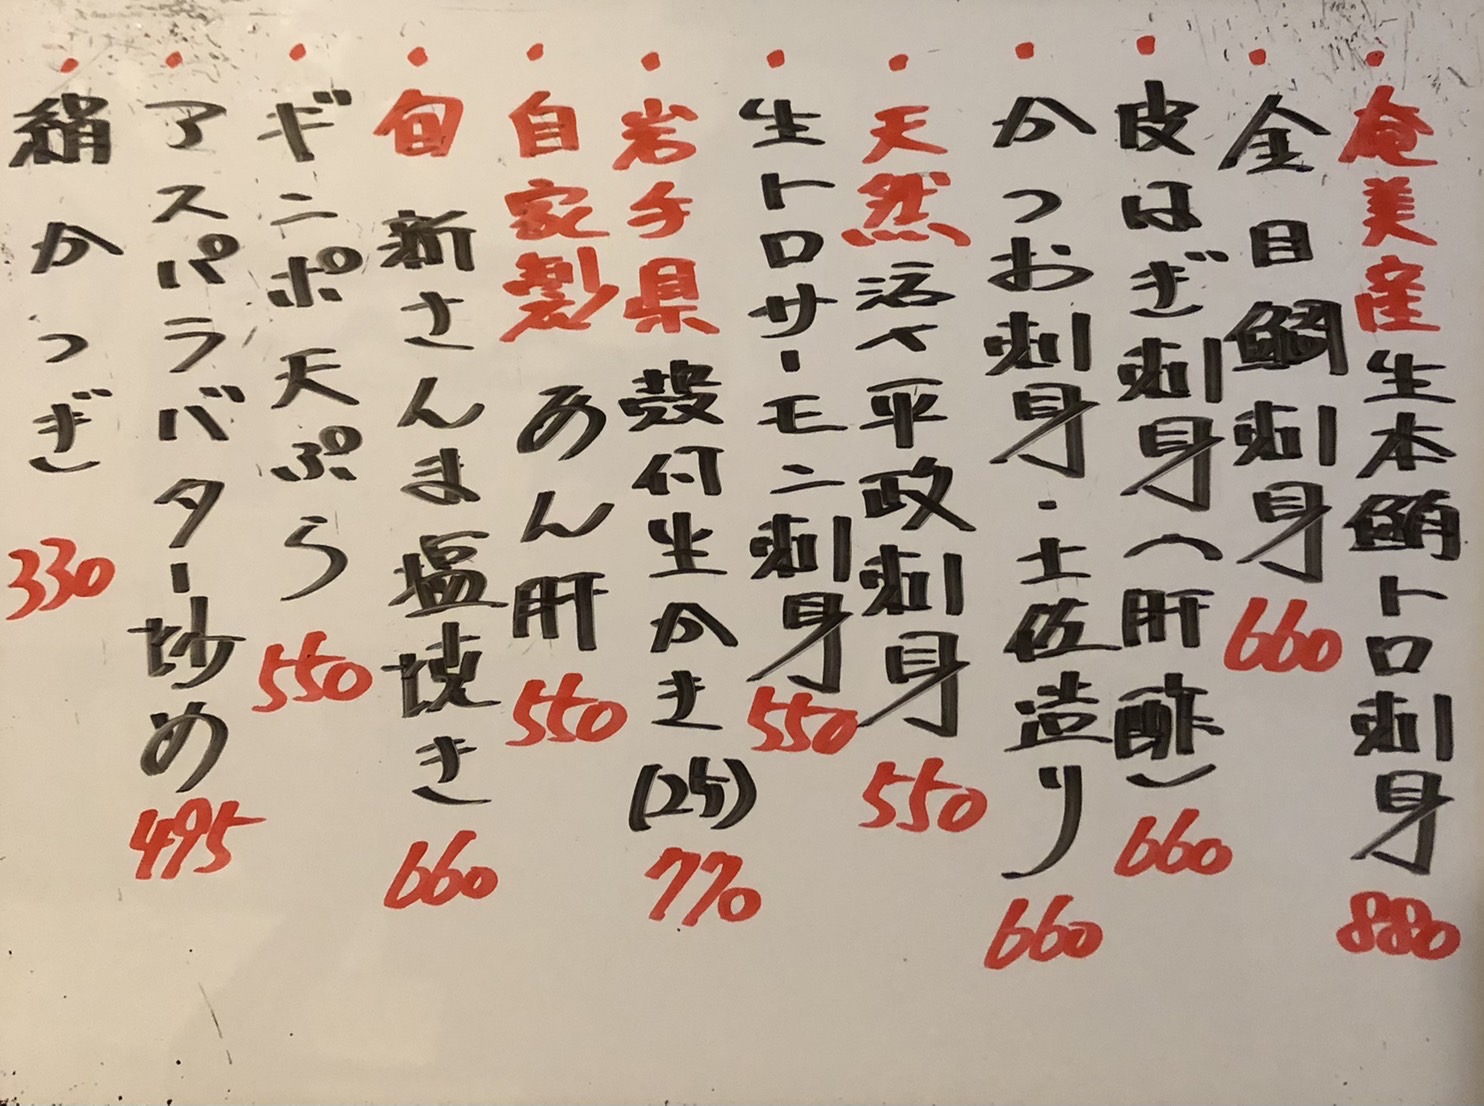 ・奄美産生本鮪トロ刺身 880
・金目鯛刺身 660
・皮はぎ刺身(肝酢) 660
・かつお刺身・土佐造り 660
・天然活〆平政刺身 550
・生トロサーモン刺身 550
・岩手県 殻付生かき(2ケ) 770
・自家製 あん肝 550
・旬 新さんま塩焼き 660
・ギンポ天ぷら 550
・アスパラバター炒め 495
・絹かつぎ 330